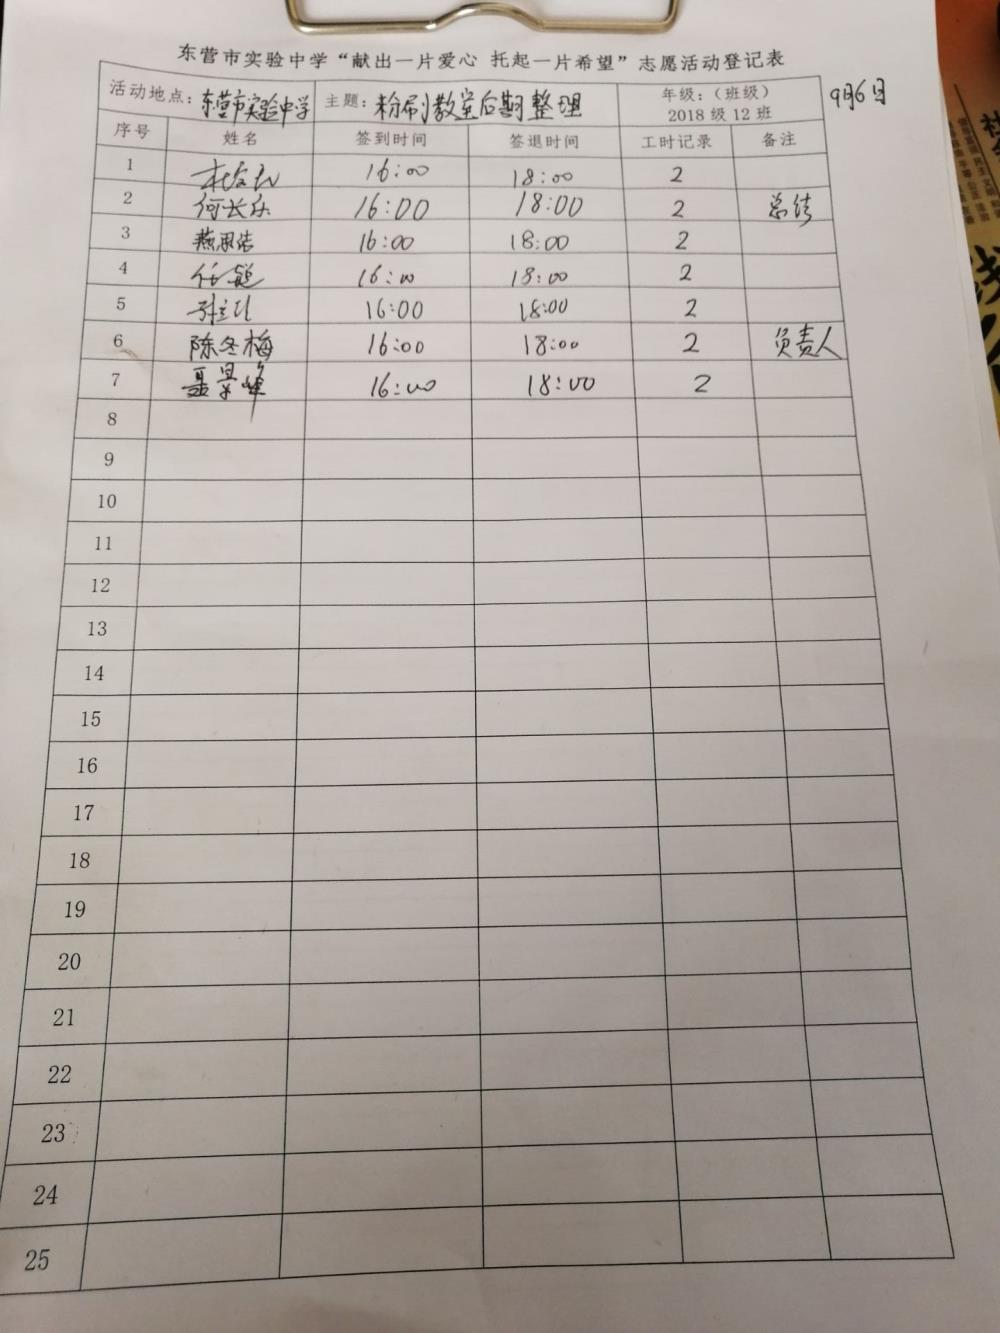 东营市实验中学“献出一片爱心 托起一片希望”志愿活动登记表
活动地点：东营市实验中学 主题：粉刷教室后期整理 年级：（班级） 2018 级 12 班 9月6日
序号 姓名 签到时间 签退时间 工时记录 备注
1 16:00 18:00 2
2 何长乐 16:00 18:00 2 总结
3 燕思洁 16:00 18:00 2
4 16:00 18:00 2
5 16:00 18:00 2
6 陈冬梅 16:00 18:00 2 负责人
7 聂景峰 16:00 18:00 2
8
9
10
11
12
13
14
15
16
17
18
19
20
21
22
23
24
25